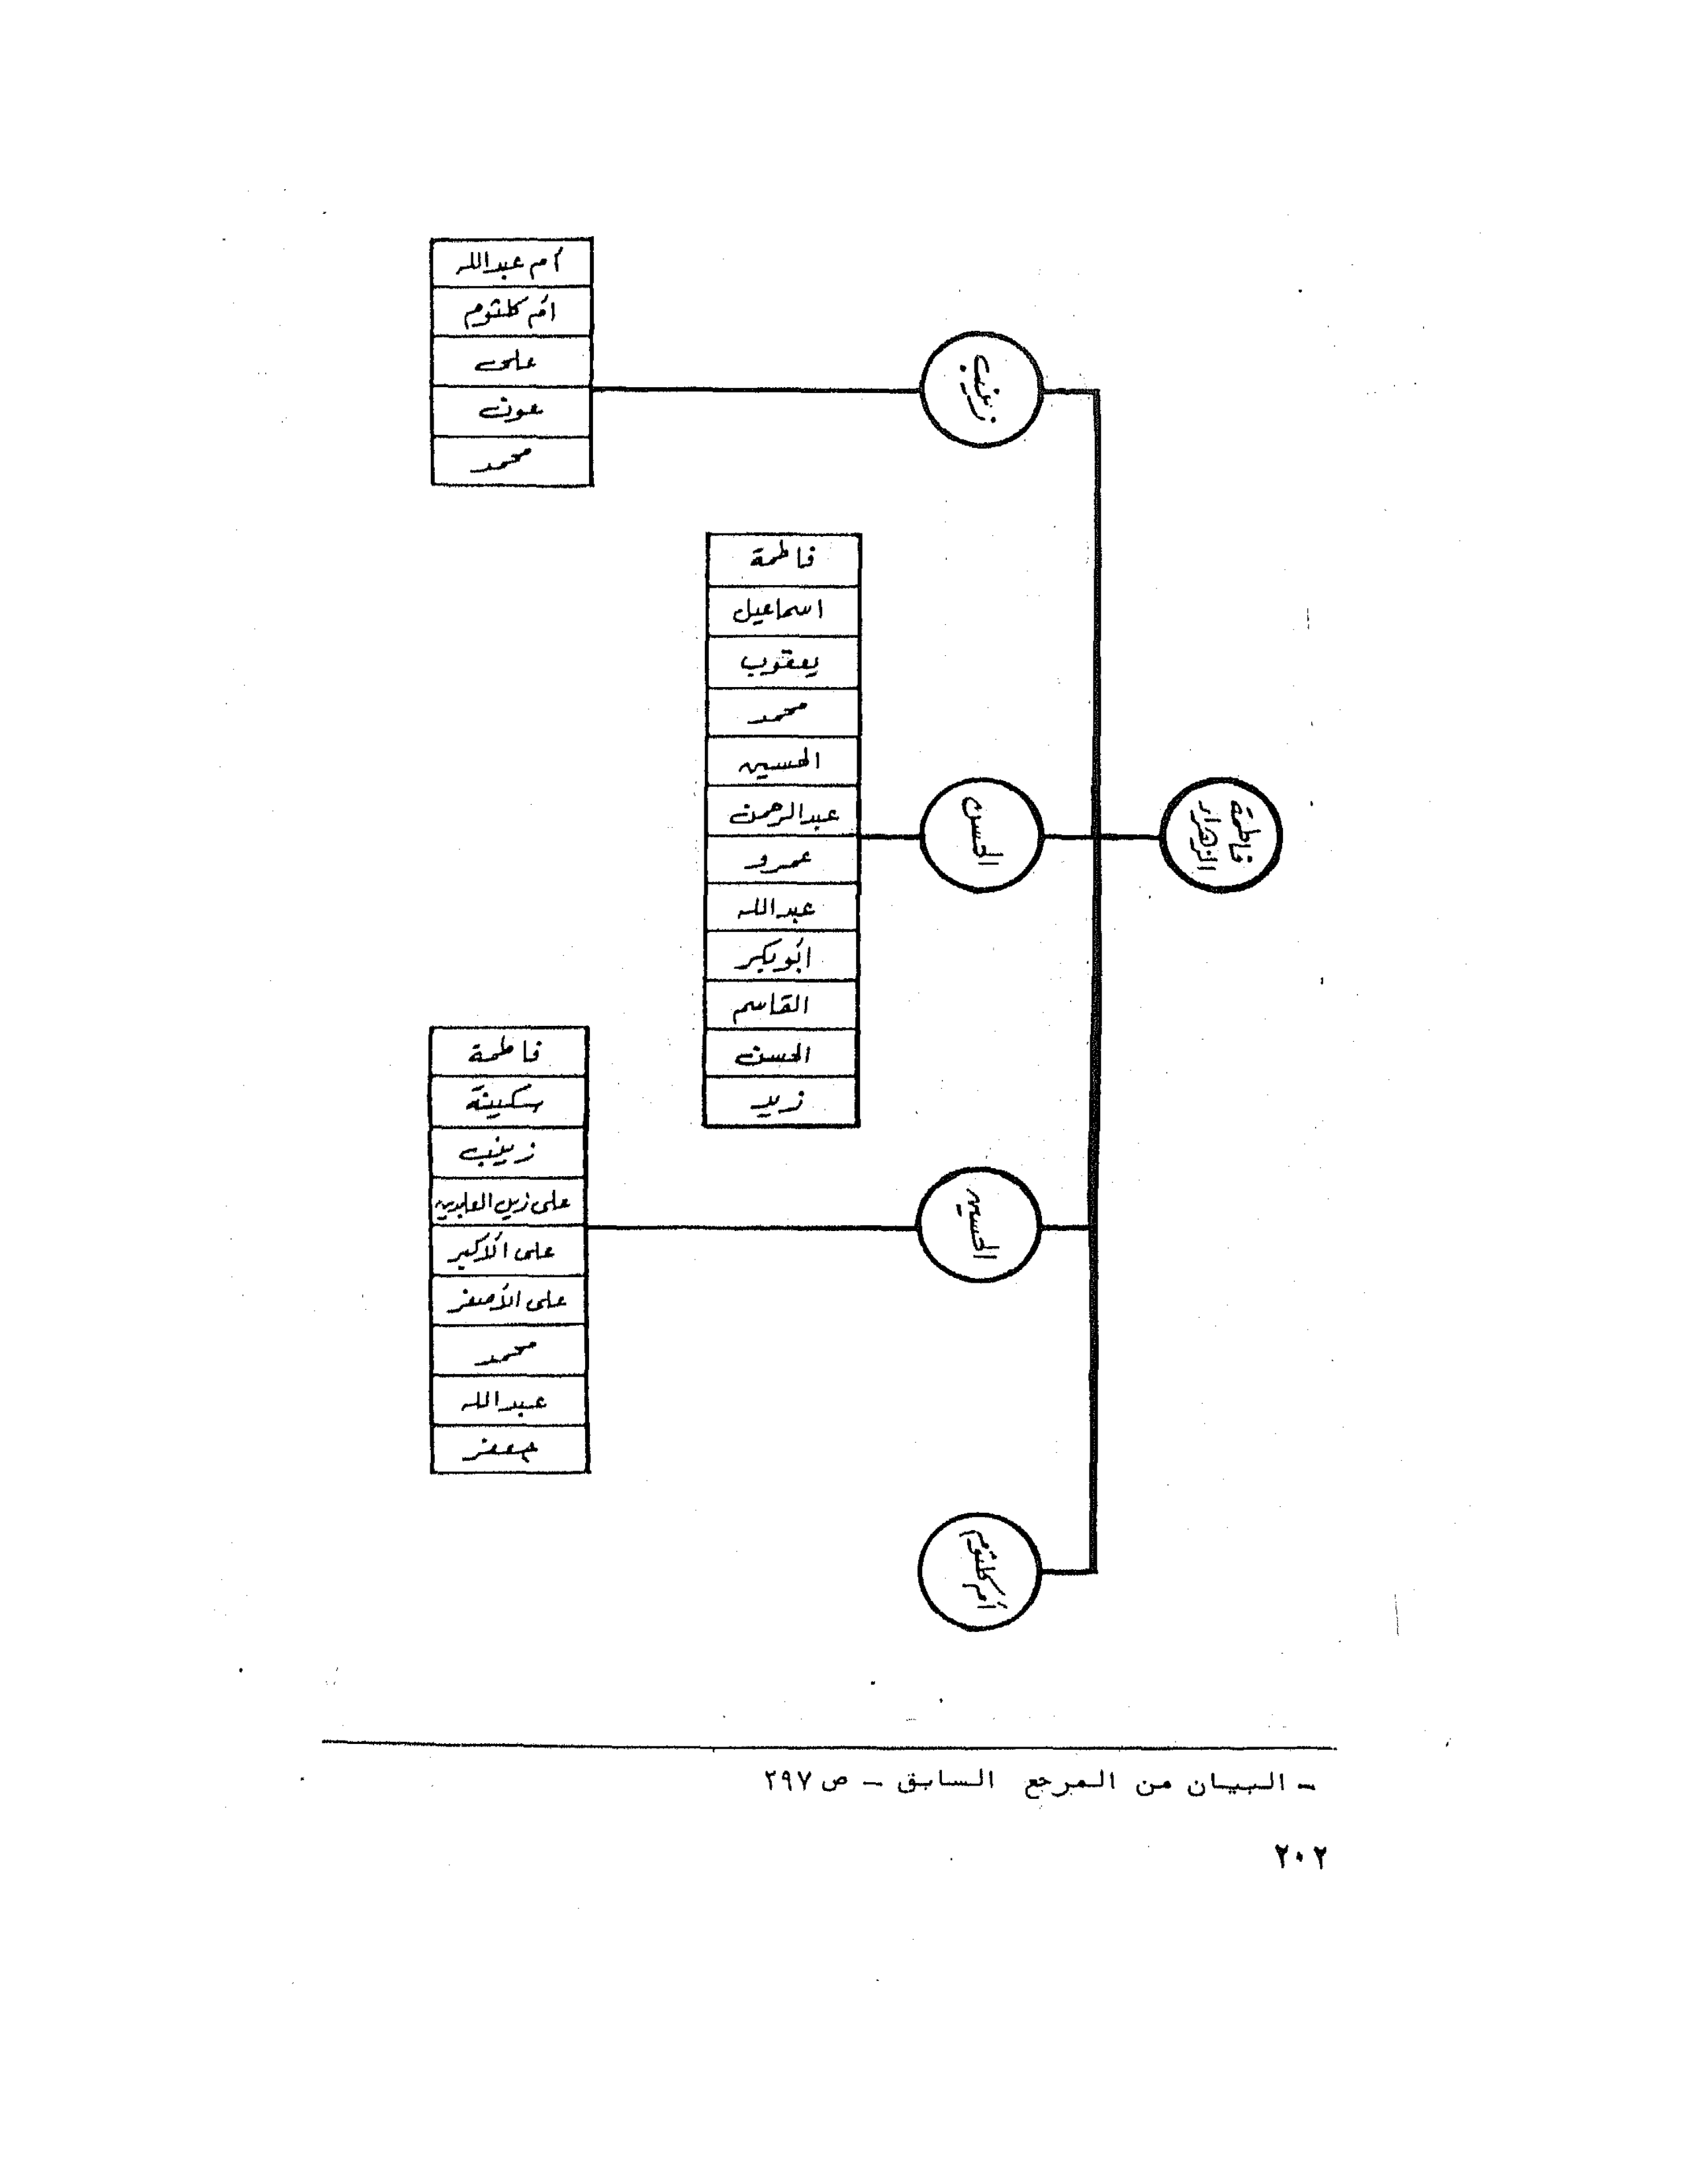 فاطمة
الزهراء
زينب
أم عبدالله
أم كلثوم
على
عون
محمد
الحسن
فاطمة
اسماعيل
يعقوب
محمد
الحسين
عبدالرحمن
عمرو
عبدالله
أبوبكر
القاسم
الحسن
زيد
الحسين
فاطمة
سكينة
زينب
على زين العابدين
على الأكبر
على الأصغر
محمد
عبدالله
جعفر
أم كلثوم
- البيان من المرجع السابق - ص ٢٩٧
٢٠٢